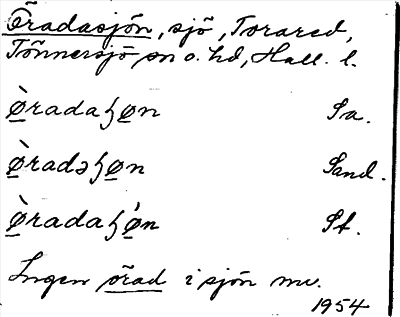 Öradasjön, sjö, Torared,
Tönnersjö sn o. hd, Hall. l.
ø̀radaɧøn Sa.
ø̀radəɧøn Sand.
ø̀radaɧø̀n St.
Ingen örad i sjön nu.
1954